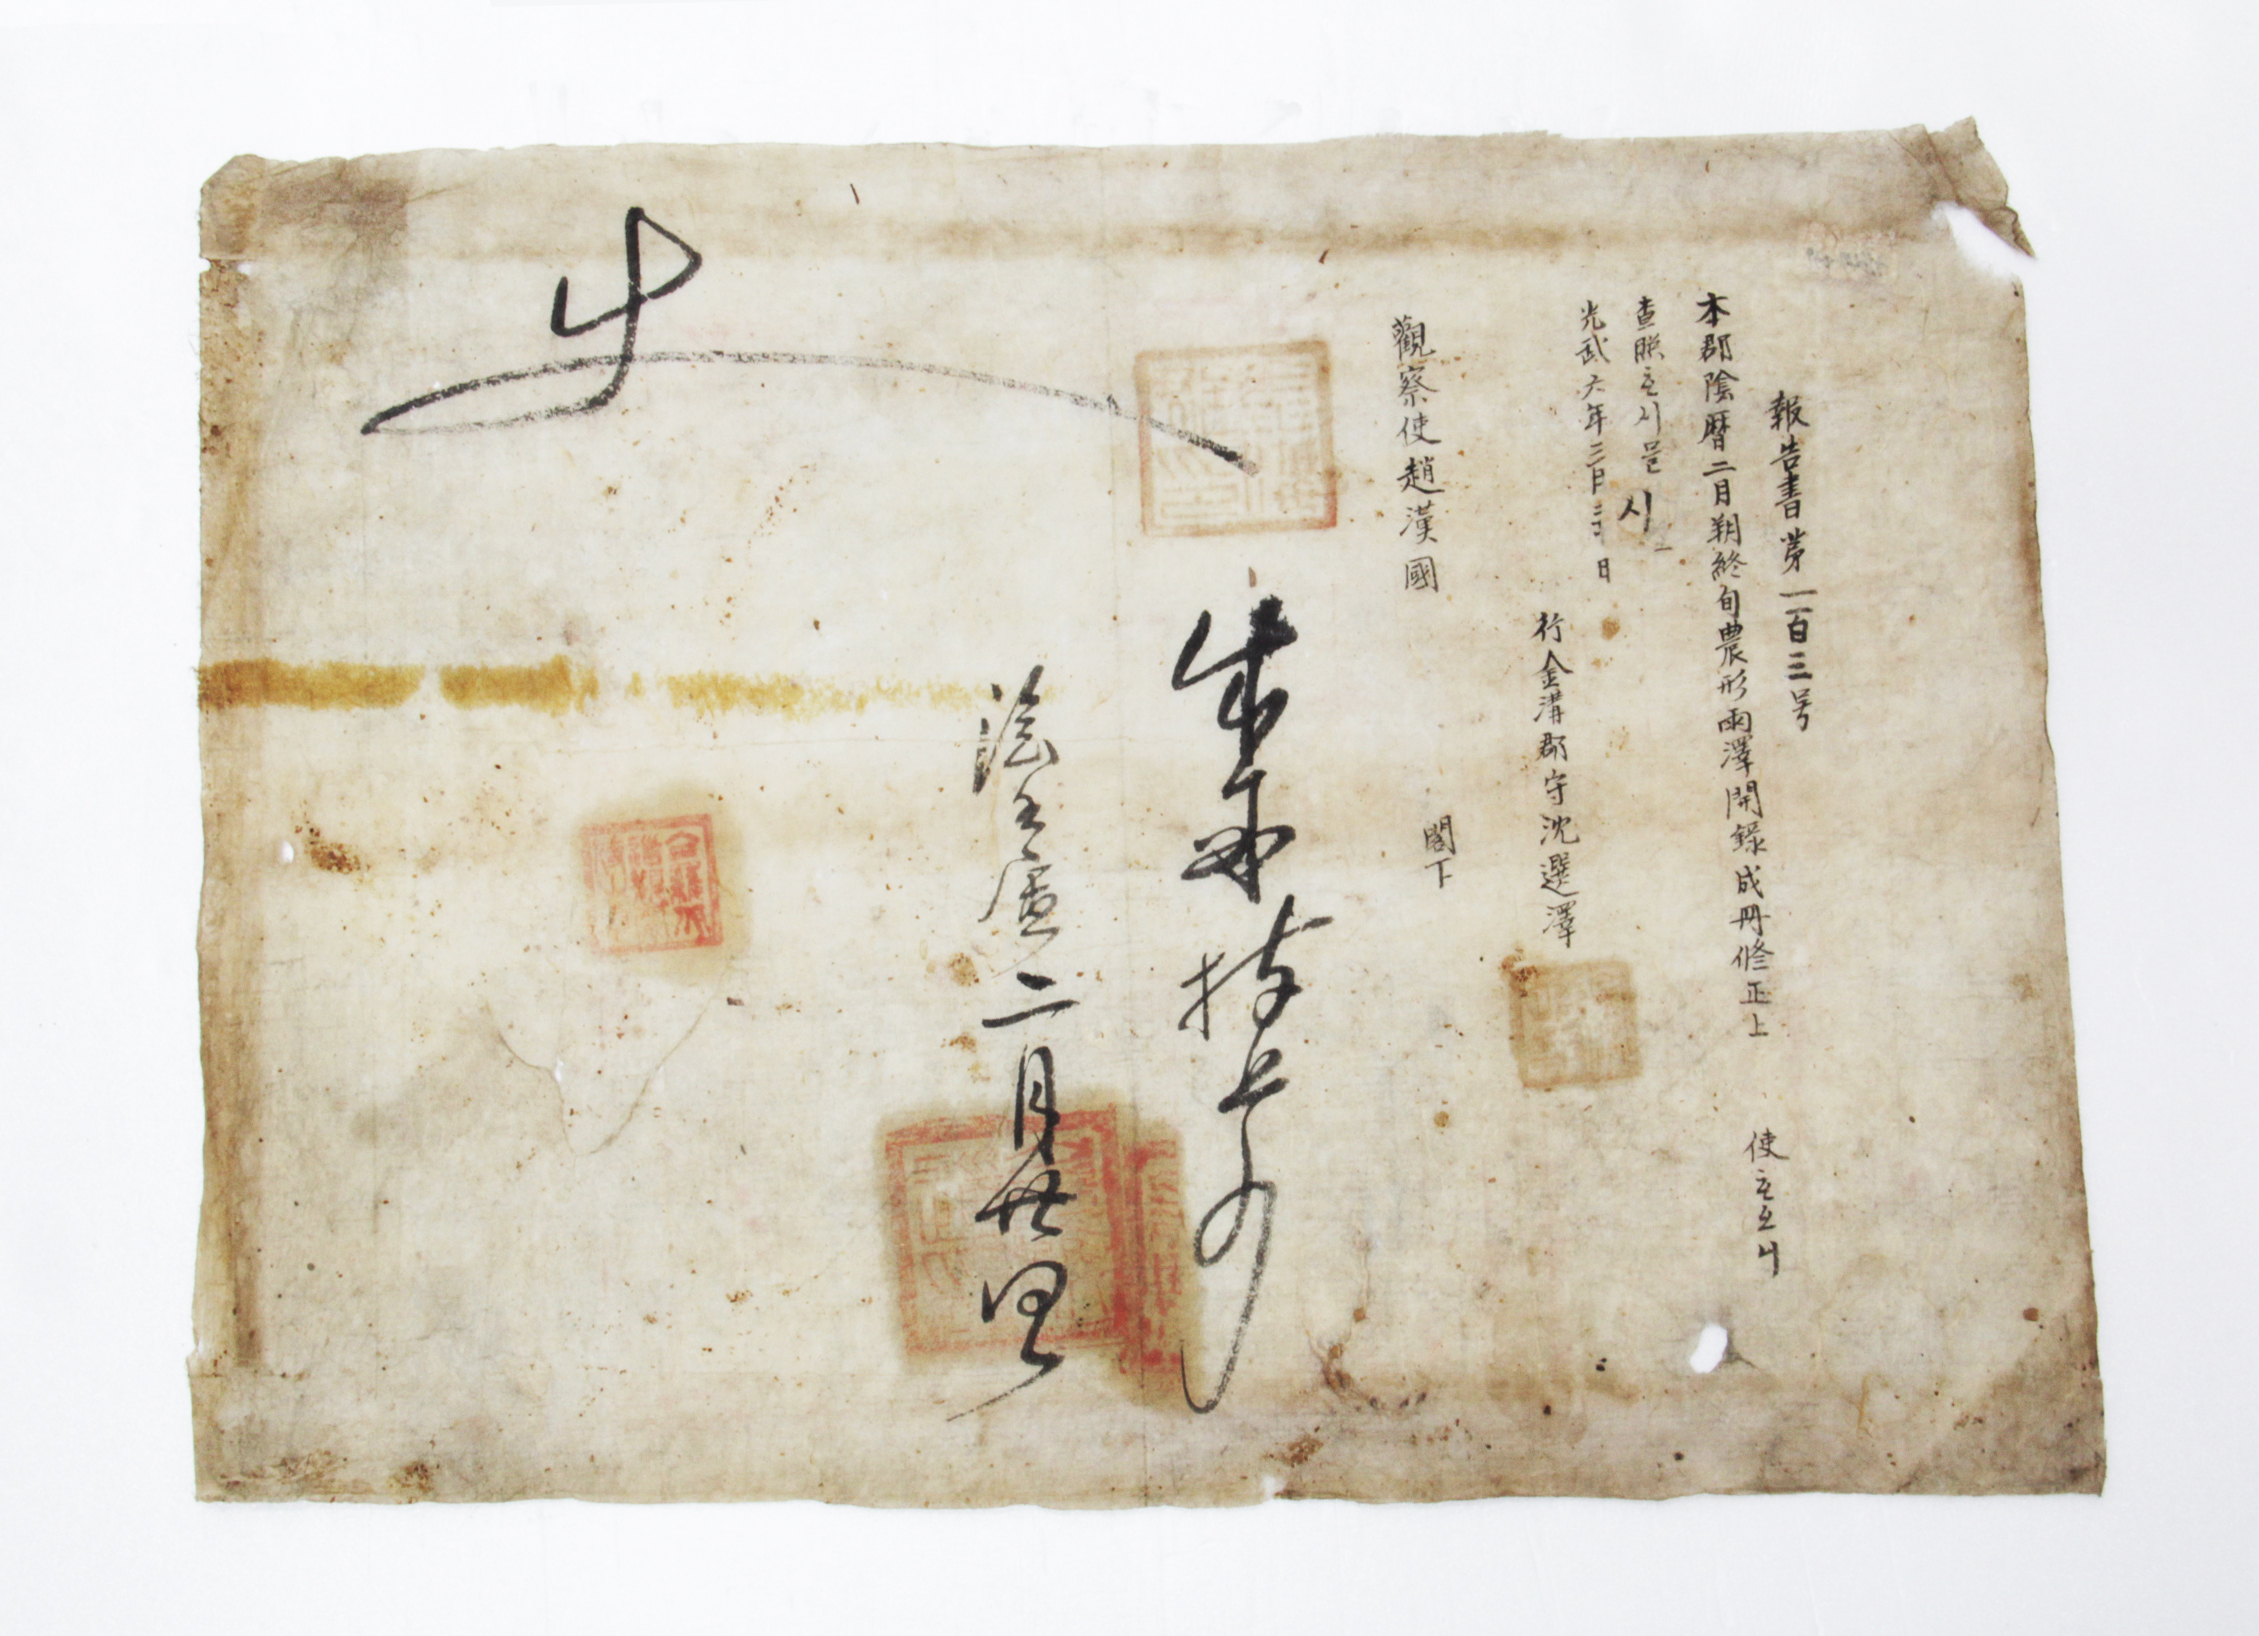 報告書第一百三号
本郡陰曆二月朔終旬農形雨澤開錄成冊修正上 使ᄒᆞ오니
査照ᄒᆞ시믈
光武六年三月 日
行金溝郡守沈選澤
觀察使趙漢國 閣下
成册捧上
陰壬寅二月廿四
使